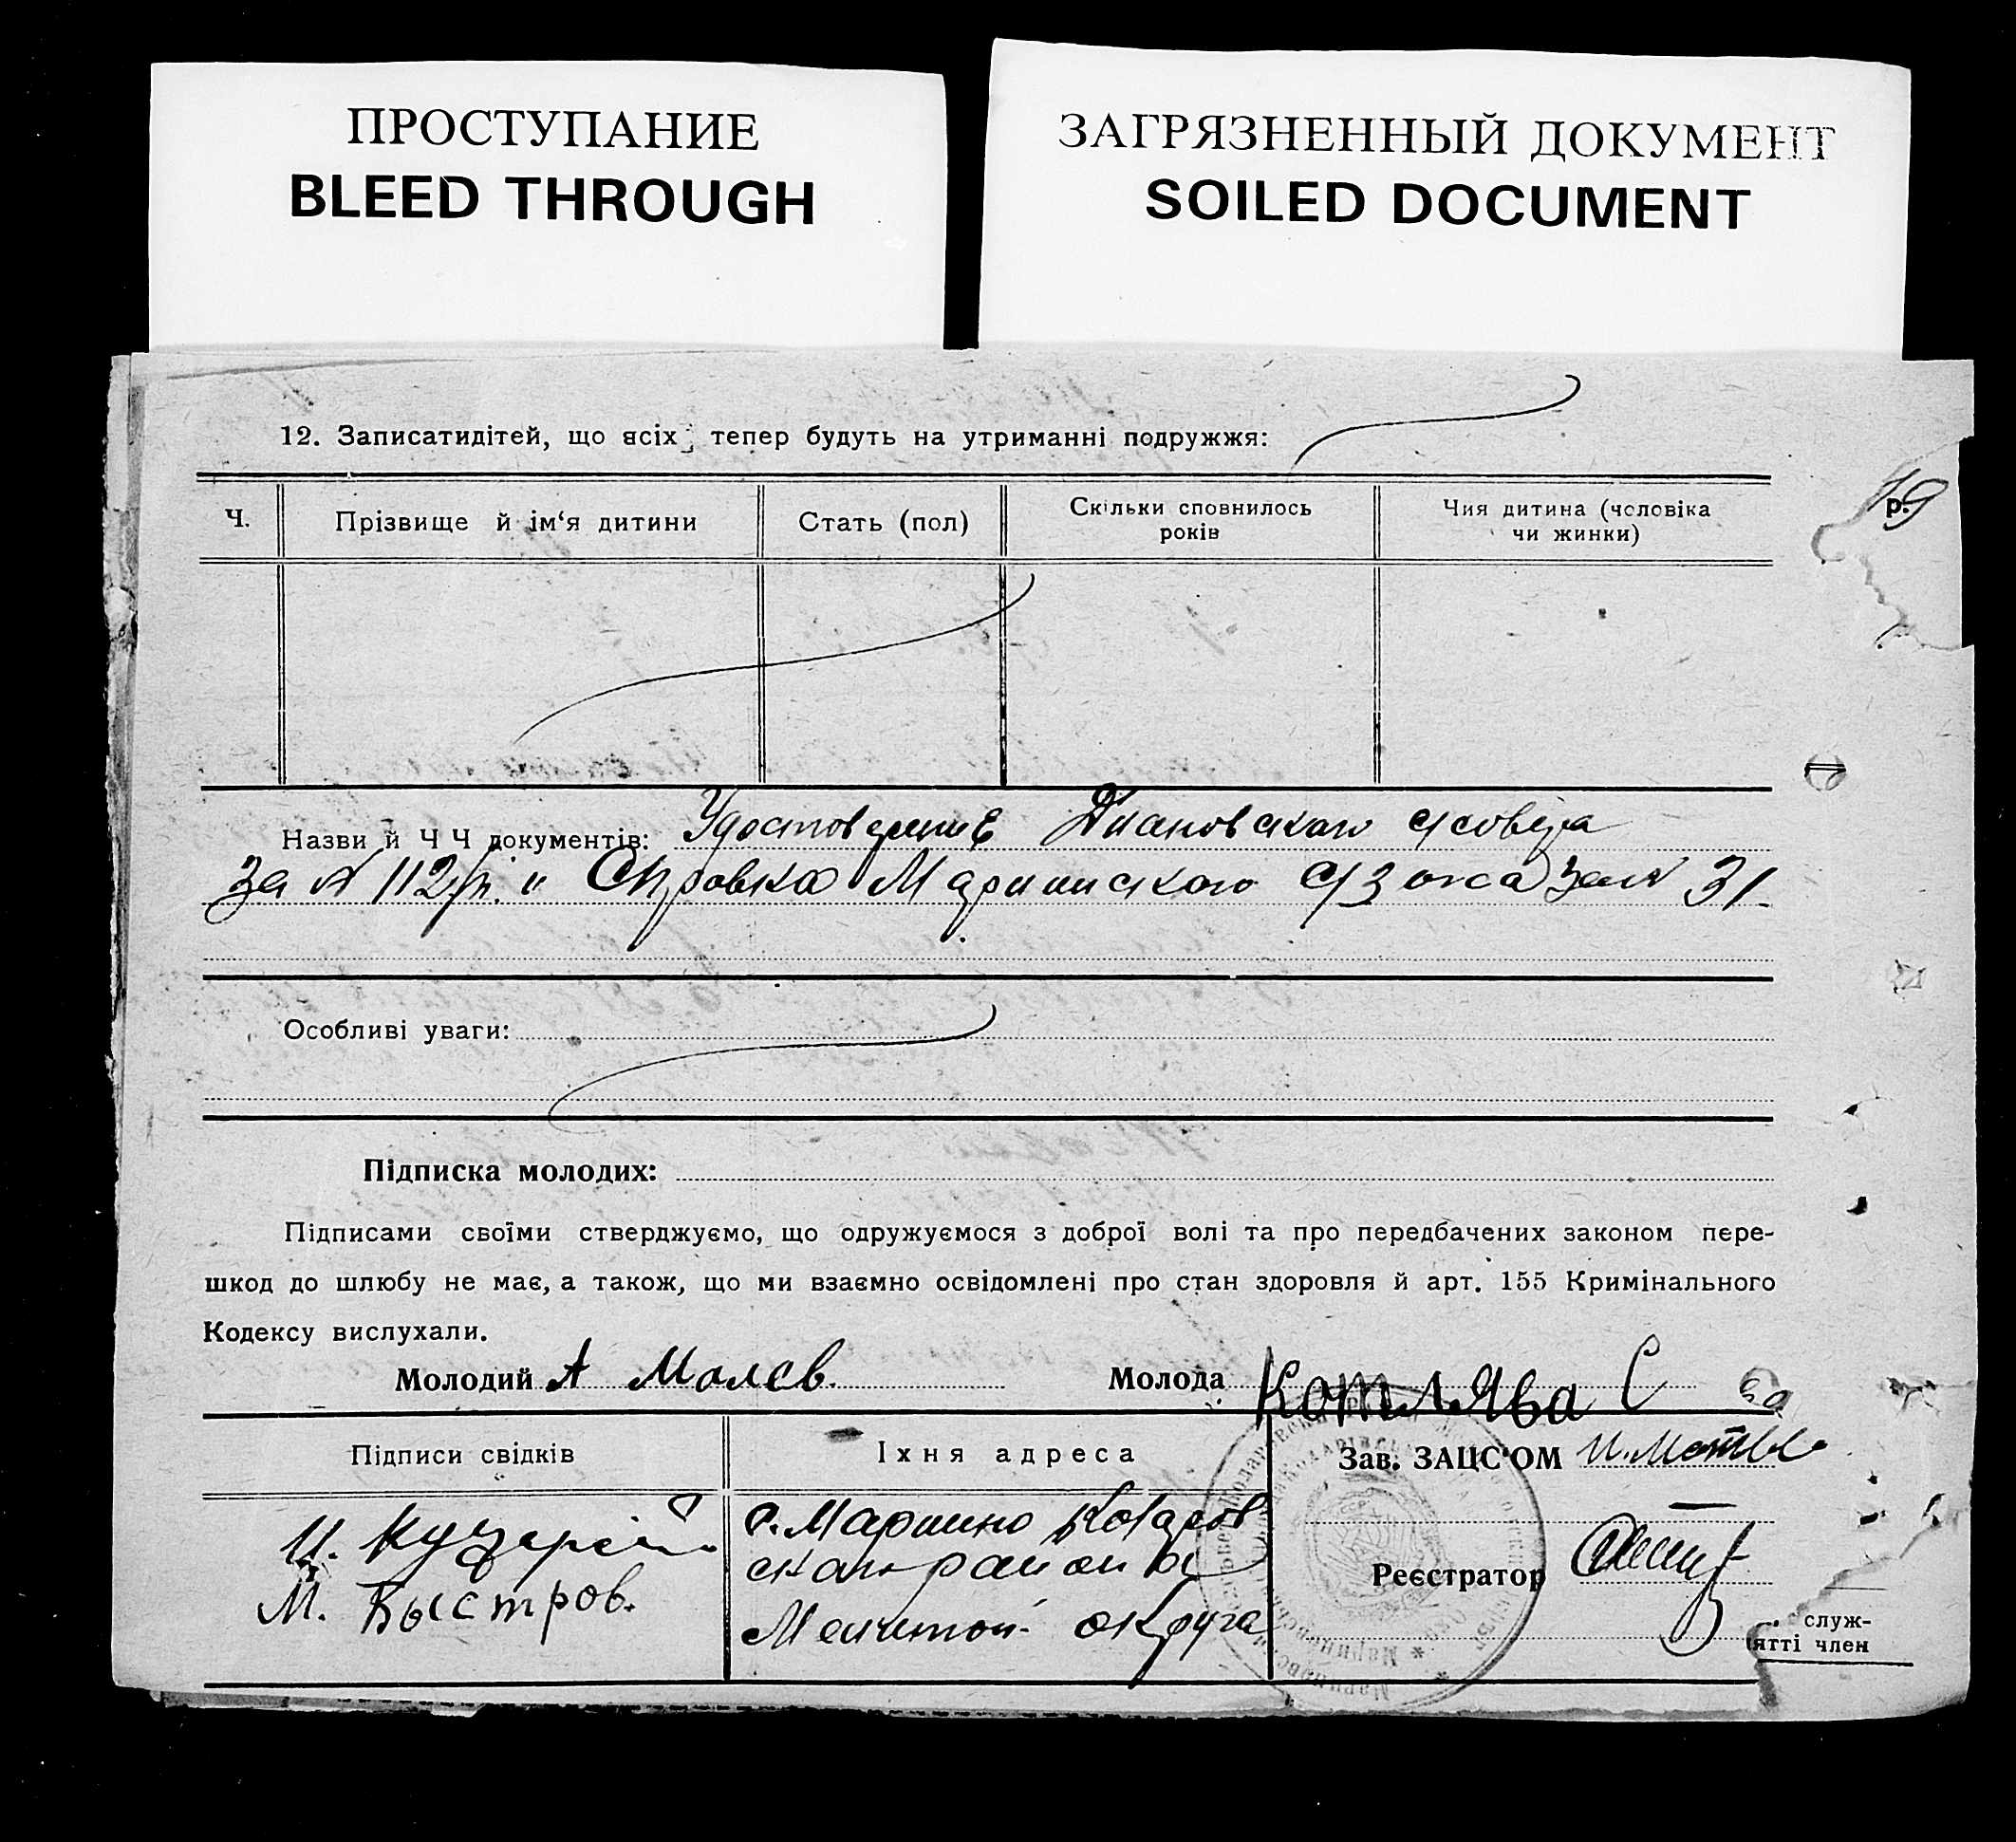 ПРОСТУПАНИЕ
BLEED THROUGH
ЗАГРЯЗНЕННЫЙ ДОКУМЕНТ
SOILED DOCUMENT
12. Записатидітей, що всіх тепер будуть на утриманні подружжя:
Ч. Прізвище й ім‘я дитини Стать (пол) Скільки сповнилось років Чия дитина (чоловіка чи жинки)
19
р.
Назви й Ч Ч документів: Удостоверение Диановского с/совета
За № 112/п. и Справка Мариинского с/з ЗАГСа за № 31.
Особливі уваги:
Підписка молодих:
Підписами своїми стверджуємо, що одружуємося з доброї волі та про передбачених законом пере-
шкод до шлюбу не має, а також, що ми взаємно освідомлені про стан здоровля й арт. 155 Кримінального
Кодексу вислухали.
Молодий А Малев. Молода Котлява С
Підписи свідків Їхня адреса Зав. ЗАЦС‘ОМ
И.
с. Мариино
района
М. Быстров.
Мелитоп. округа
Реєстратор
служ-
ятті член